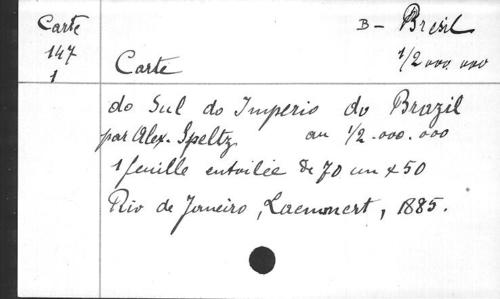 Carte B - Brésil
147 1/2 000 000
1 Carte
do Sul do Imperio do Brazil
par Alex. Speltz au 1/2.000.000
1 feuille entoilée de 70 cm x 50
Rio de Janeiro, Laemmert, 1885.